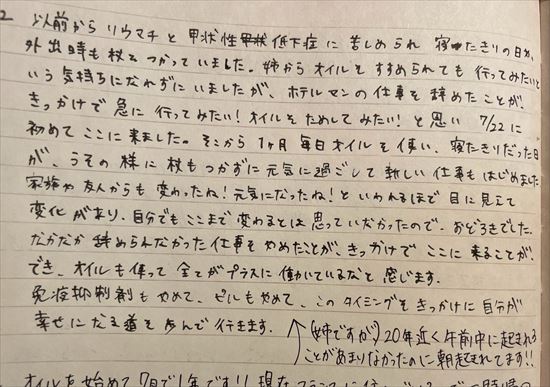 以前からリウマチと甲状性低下症に苦しめられ 寝たきりの日か、
外出時も杖をつかっていました。姉からオイルをすすめられても行ってみたいと
いう気持ちになれずにいましたが、ホテルマンの仕事を辞めたことが、
きっかけで急に行ってみたい！オイルをためしてみたい！と思い 7/22に
初めてここに来ました。そこから1ヶ月毎日オイルを使い、寝たきりだった日
が、うその様に杖もつかずに元気に過ごして新しい仕事もはじめました
家族や友人からも変わったね！元気になったね！といわれるほど目に見えて
変化があり、自分でもここまで変わるとは思っていなかったので、おどろきでした。
なかなか辞められなかった仕事をやめたことが、きっかけでここに来ることが、
でき、オイルも使って全てがプラスに働いているなと感じます。
免疫抑制剤もやめて、ピルもやめて、このタイミングをきっかけに自分が
幸せになる道を歩んで行きます。
(姉ですが)20年近く午前中に起きれる
ことがあまりなかったのに朝起きれてます!!
オイルを始めて7日で1年です!! 現在